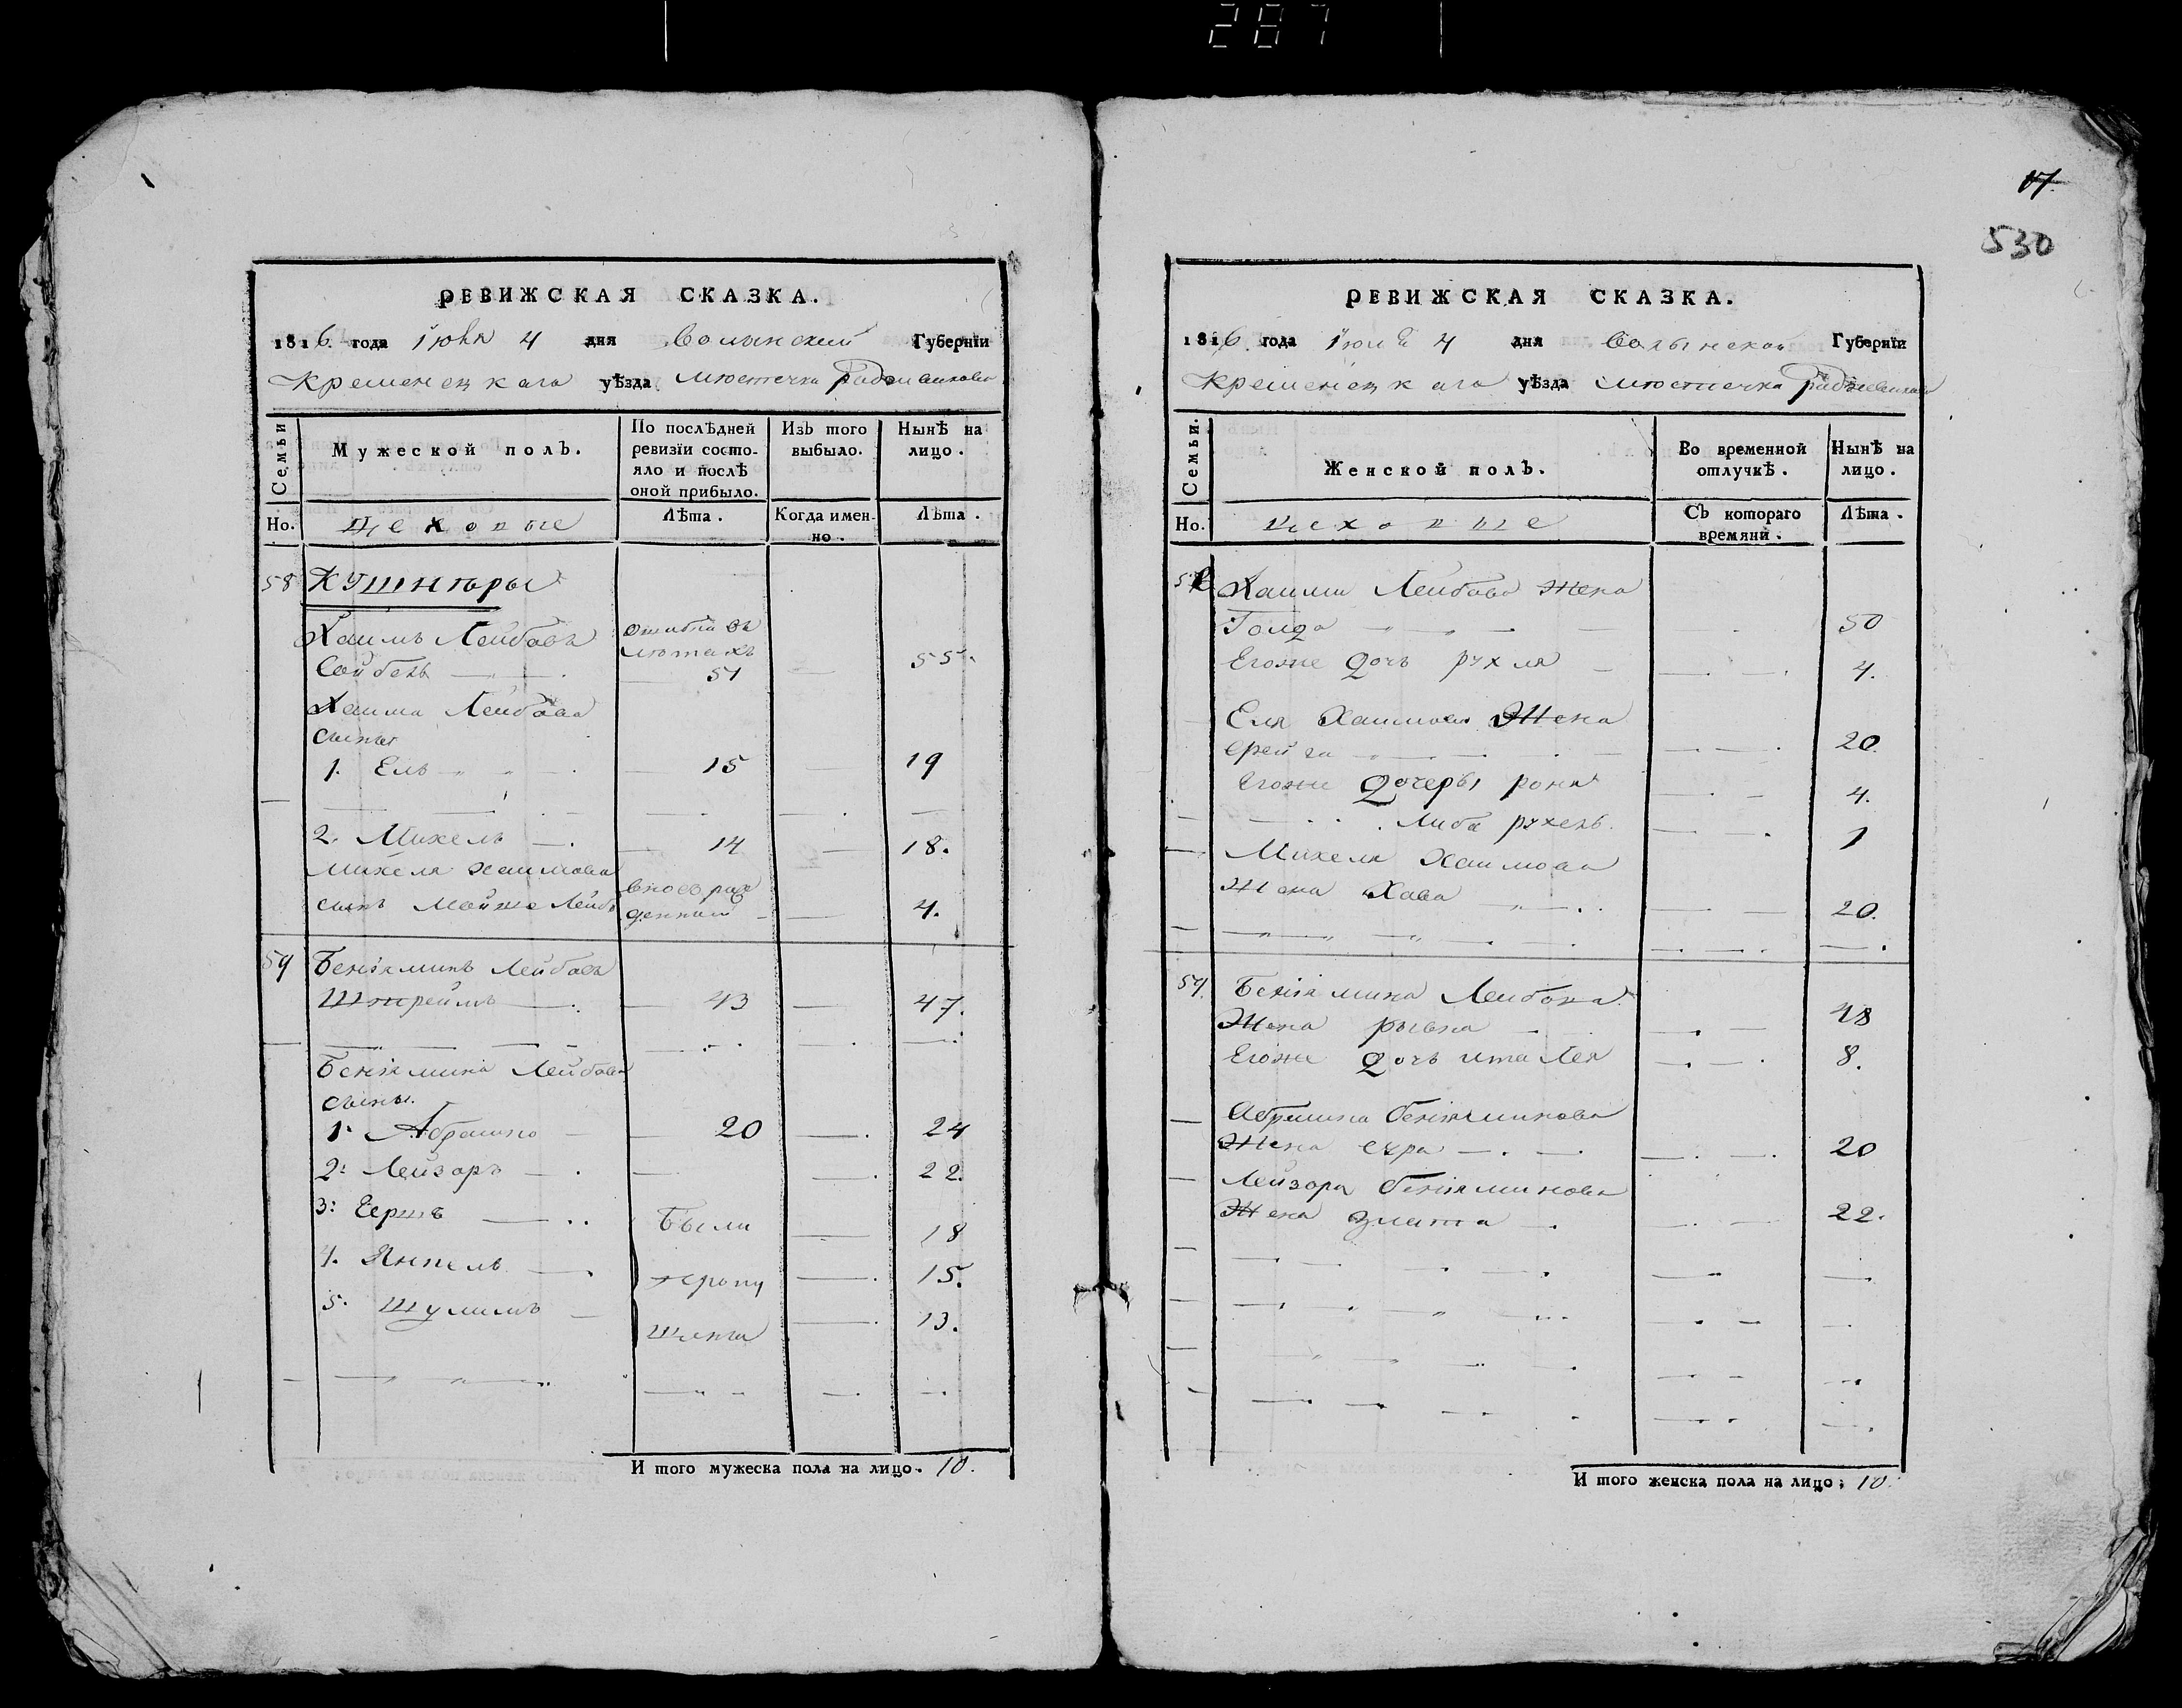 287
17
530
РЕВИЖСКАЯ СКАЗКА.
1816. года Іюня 4 дня Волынской Губернїи
Кременецкаго уѣзда местечка Радзивилова
Семьи
Мужеской полъ.
По послѣдней ревизїи состояло и послѣ оной прибыло.
Изъ того выбыло.
Нынѣ на лицо.
Но. Цеховые
Лѣта.
Когда именно.
Лѣта.
58 Кушнѣры
Хаимъ Лейбовъ ошибка въ летахъ
Сойбель 51 55.
Хаима Лейбова
сыны
1. Ель 15 19
2. Михель 14 18.
Михеля Хаимова
сынъ Мойше Лейбъ вновь рожденный 4.
59 Беніяминъ Лейбовъ
Штреймъ 43 47.
Беніямина Лейбова
сыны.
1. Абрамко 20 24
2. Лейзоръ 22.
3. Гершъ Были 18
4. Янкель 15.
5. Шулимъ 13.
И того мужеска пола на лицо. 10.
РЕВИЖСКАЯ СКАЗКА.
1816. года Іюня 4 дня Волынской Губернїи
Кременецкаго уѣзда местечка Радзивилова
Семьи.
Женской полъ.
Во временной отлучкѣ.
Нынѣ на лицо.
Но. Цеховые
Съ котораго времяни.
Лѣта.
58 Хаима Лейбова жена
Голда 50
Егоже дочь Рухля 4.
Еля Хаимова Жена
Фрейда 20.
Егоже дочеры Роня 4.
Либа Рухель. 1
Михеля Хаимова
Жена Хава 20.
59. Беніямина Лейбова
Жена Рывка 48
Егоже дочь Ита Лея 8.
Абрамка Беніяминова
Жена Сура 20
Лейзора Беніяминова
Жена Злата 22.
И того женска пола на лицо; 10.